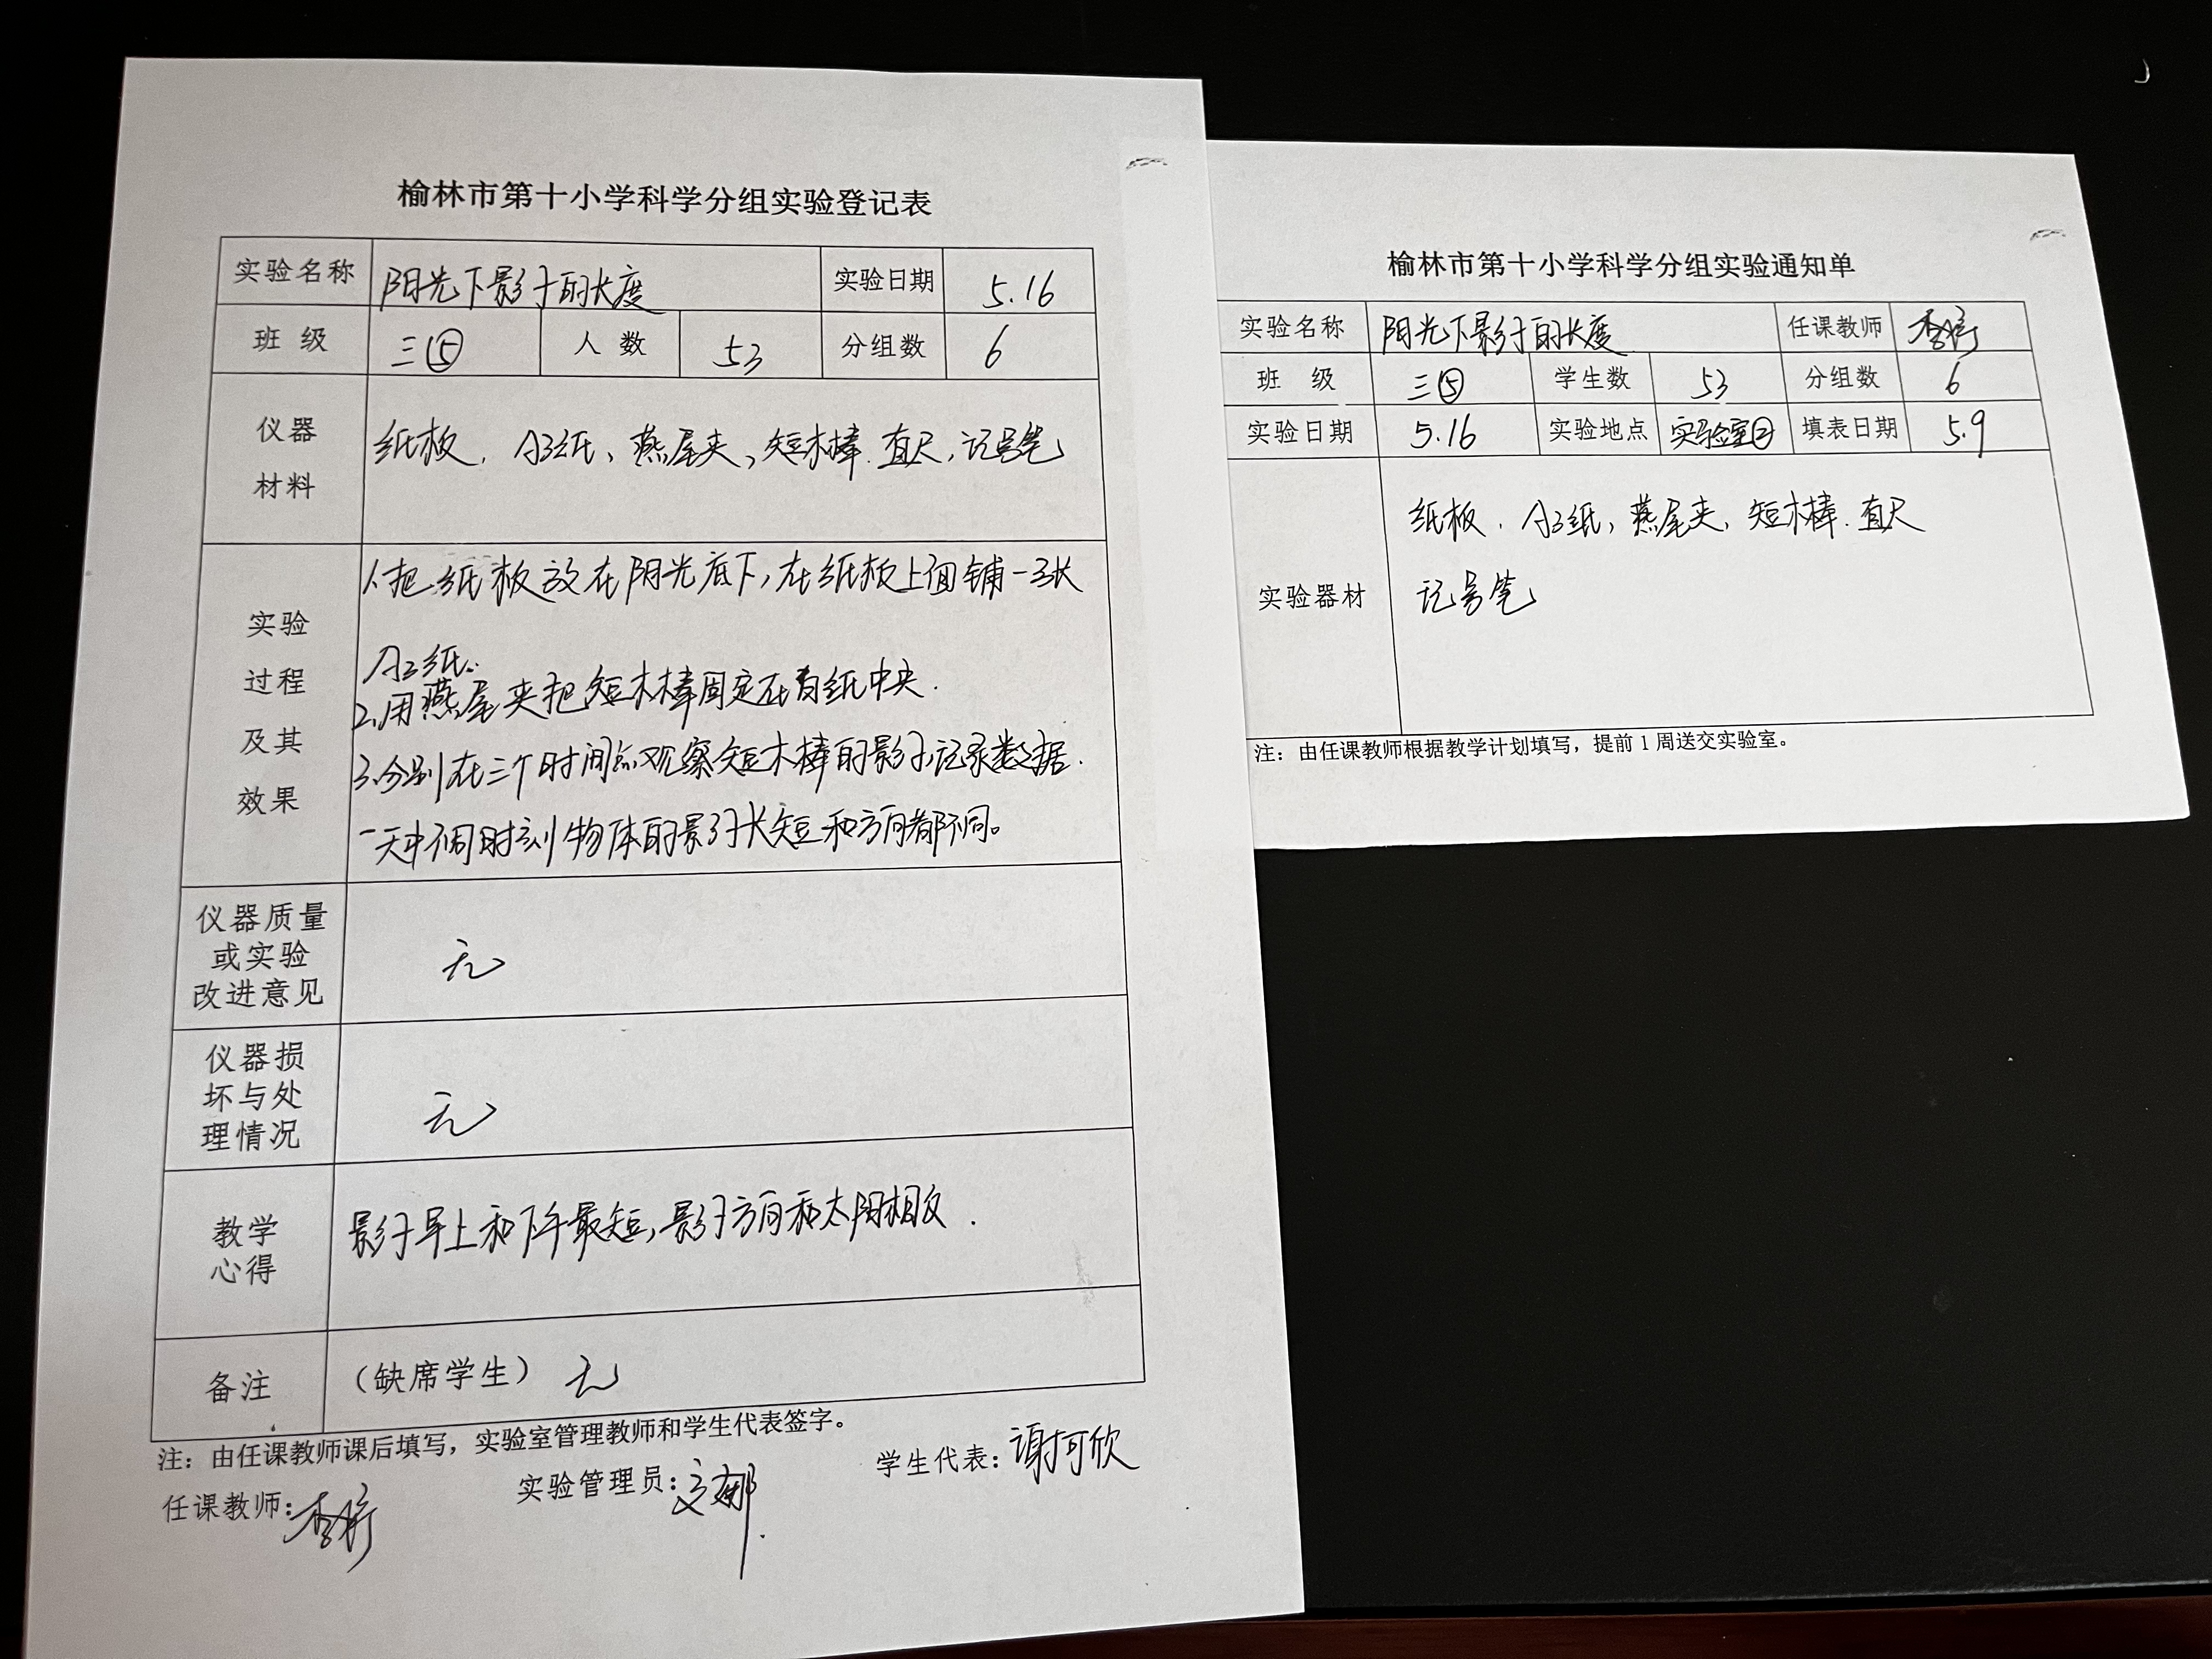 榆林市第十小学科学分组实验登记表
实验名称 阳光下影子的长度 实验日期 5.16
班 级 三⑤ 人 数 53 分组数 6
仪器 材料 纸板、A3纸、燕尾夹、短木棒、直尺、记号笔
实验 过程 及其 效果
1.把纸板放在阳光底下,在纸板上面铺一张
A3纸.
2.用燕尾夹把短木棒固定在白纸中央.
3.分别在三个时间点观察短木棒的影子,记录数据.
一天中不同时刻物体的影子长短和方向都不同。
仪器质量
或实验
改进意见 无
仪器损
坏与处
理情况 无
教学
心得 影子早上和下午最短,影子方向和太阳相反.
备注 (缺席学生) 无
注:由任课教师课后填写,实验室管理教师和学生代表签字。
任课教师: 实验管理员: 学生代表:谢可欣
榆林市第十小学科学分组实验通知单
实验名称 阳光下影子的长度 任课教师
班 级 三⑤ 学生数 53 分组数 6
实验日期 5.16 实验地点 实验室② 填表日期 5.9
实验器材 纸板、A3纸、燕尾夹、短木棒、直尺
记号笔
注:由任课教师根据教学计划填写,提前1周送交实验室。